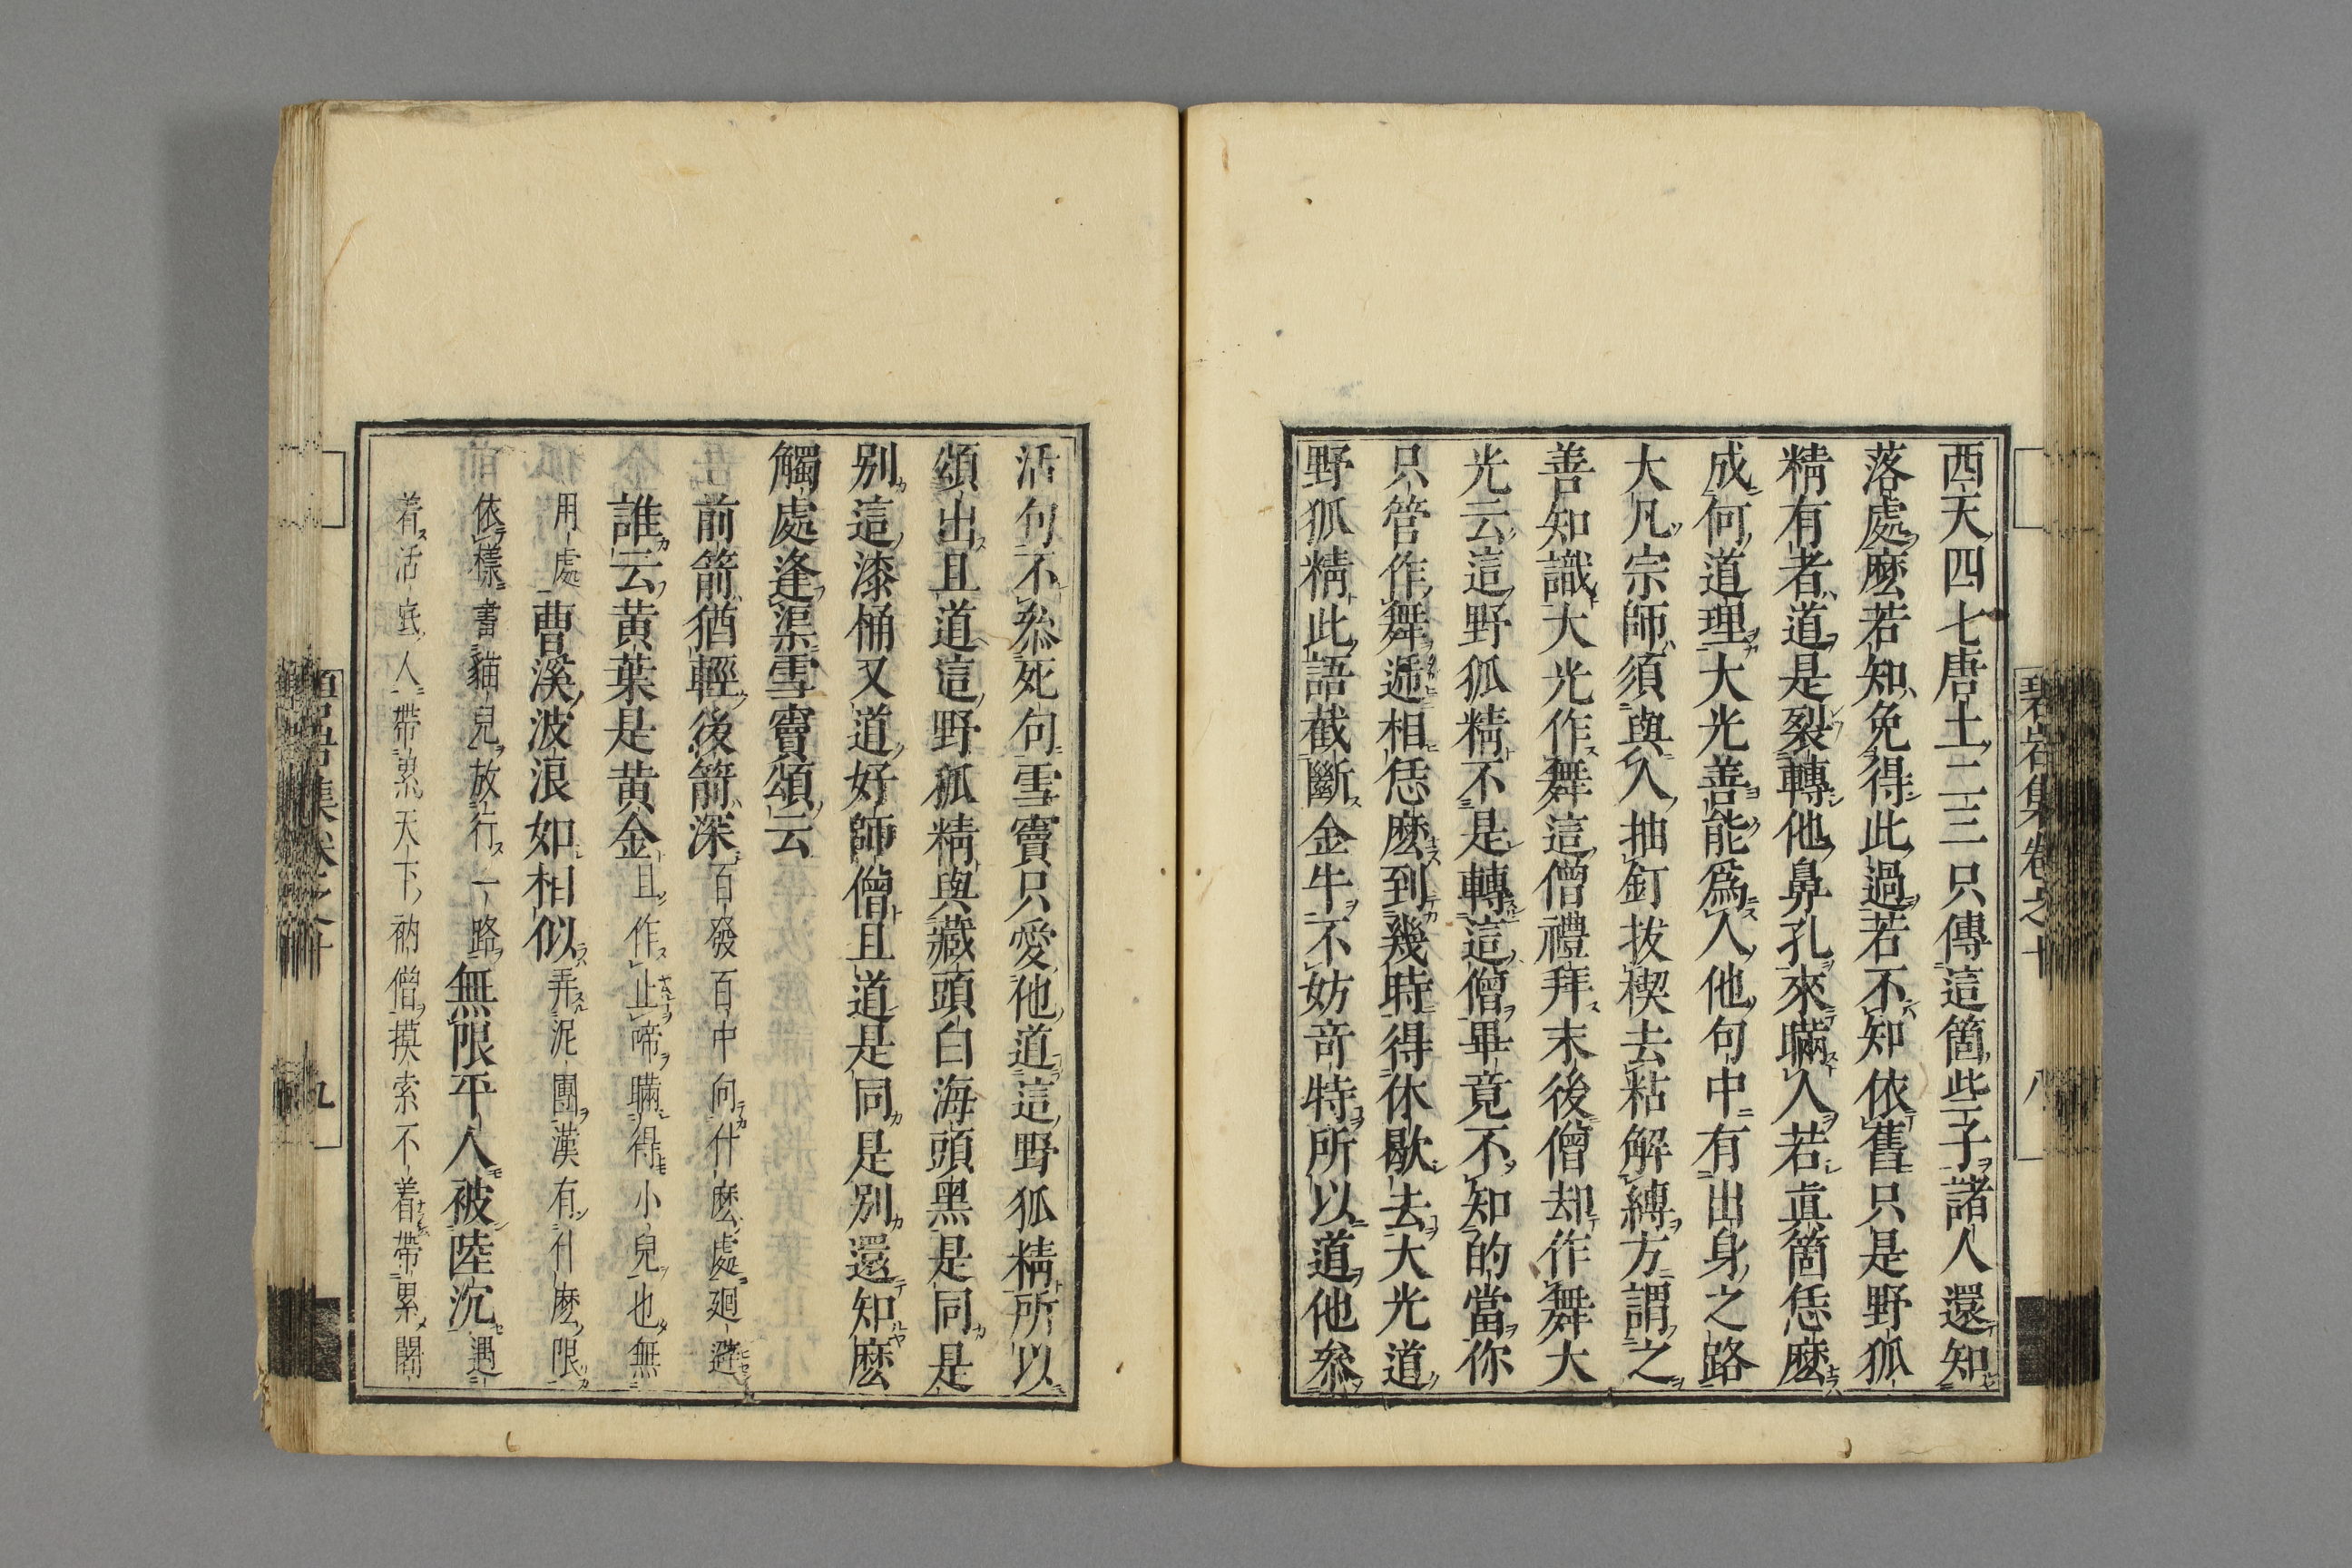 西天四七唐土二三只傳這箇些子諸人還知
落處麼若知免得此過若不知依舊只是野狐
精有者道是裂轉他鼻孔來瞞人若眞箇恁麼
成何道理大光善能爲人他句中有出身之路
大凡宗師須與人抽釘拔楔去粘解縛方謂之
善知識大光作舞這僧禮拜末後僧却作舞大
光云這野狐精不是轉這僧畢竟不知的當你
只管作舞遞相恁麼到幾時得休歇去大光道
野狐精此語截斷金牛不妨奇特所以道他叅
碧岩集卷之十 八
活句不叅死句雪竇只愛他道這野狐精所以
頌出且道這野狐精與藏頭白海頭黑是同是
別這漆桶又道好師僧且道是同是別還知麼
觸處逢渠雪竇頌云
前箭猶輕後箭深百發百中向什麼處廻避
誰云黃葉是黃金且作止啼瞞得小兒也無
用處曹溪波浪如相似弄泥團漢有什麼限
依樣畫貓兒放行一路無限平人被陸沉遇
着活底人帶累天下衲僧摸索不着帶累闍
九